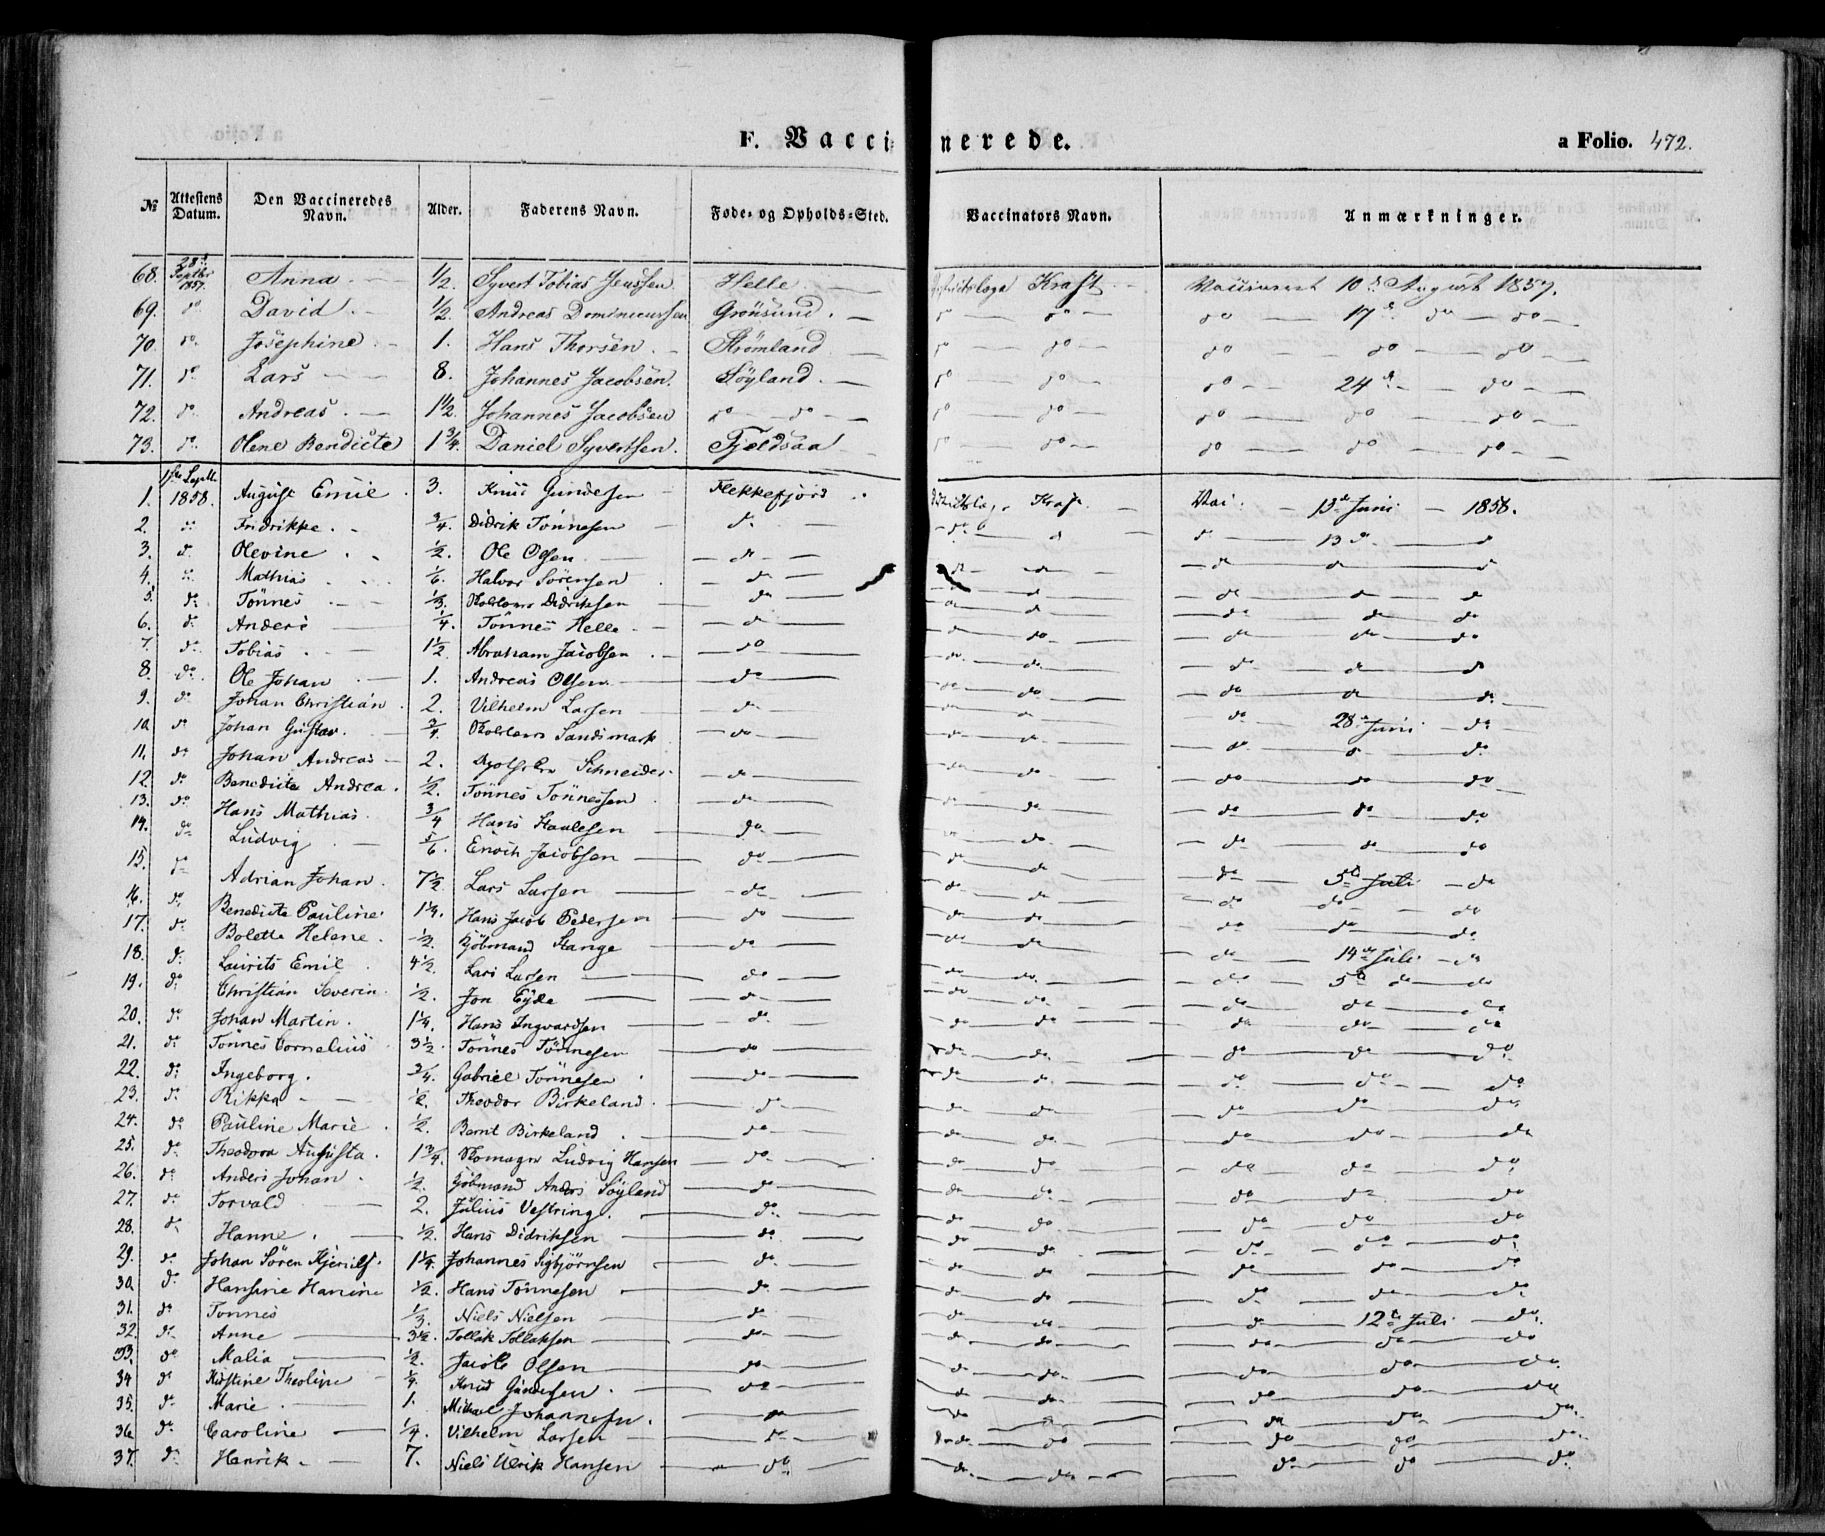 F. Vaccinerede. a Folio. 472.
№ Attestens Datum. Den Vaccineredes Navn. Alder. Faderens Navn. Føde- og Opholds-Sted. Vaccinators Navn. Anmærkninger.
68. 28d Septbr 1857. Anna 1/2. Syvert Tobias Jenssen Helle Kraft Vaccineret 10d August 1857.
69. do David 1/2. Andreas Dominicussen Grönsund. do do do 17d do do
70. do Josephine 1. Hans Thorsen Strömland do do do do do
71. do Lars 8. Johannes Jacobsen. Söyland. do do do 24d do
72. do Andreas 1 1/2. Johannes Jacobsen do do do do do do do
73. do Olene Bendicte 1 3/4. Daniel Syvertsen. Fjeldsaa do do do do do
1. 1ste Septb. 1858. August Emil 3. Knud Gundersen Flekkefjord Kraft Vac. 13de Juni 1858.
2. do Fredrikke 3/4. Didrik Tönnesen do do do do 13 do do
3. do Olevine 1/2. Ole Olsen do do do do do do
4. do Mathias 1/6. Halvor Sörensen do do do do do do
5. do Tönnes 1/3. Didriksen do do do do do do
6. do Anders 1/4. Tönnes Helle do do do do do do
7. do Tobias 1 1/2. Abraham Jacobsen do do do do do do
8. do Ole Johan 1. Andreas Olsen do do do do do do
9. do Johan Christian 2. Vilhelm Larsen do do do do do do
10. do Johan Gustav. 3/4. Sandsmark do do do do 28de Juni do
11. do Johan Andreas 2. Schneider do do do do do do
12. do Benedicte Andrea. 1/2. Tönnes Tönnessen do do do do do do
13. do Hans Mathias. 3/4 Hans Staalesen do do do do do do
14. do Ludvig 5/6. Enoch Jacobsen do do do do do do
15. do Adrian Johan. 7 1/2. Lars Larsen do do do do 5te Juli do
16. do Benedicte Pauline 1 1/4. Hans Jacob Pedersen do do do do do do
17. do Bolette Helene. 1/2. Kjöbmand Stange do do do do do do
18. do Laurits Emil 4 1/2. Lars Larsen do do do do 14de Juli do
19. do Christian Severin. 1/2. Jon Eyde do do do do 5te do do
20. do Johan Martin. 1 1/4. Hans Ingvardsen do do do do do do
21. do Tönnes Cornelius 3 1/2. Tönnes Tönnesen do do do do do do
22. do Ingeborg. 3/4. Gabriel Tönnesen do do do do do do
23. do Rikka 1/2. Theodor Birkeland. do do do do do do
24. do Pauline Marie 1/2. Bernt Birkeland do do do do do do
25. do Theodora Augusta. 1 3/4. Skomager Ludvig Hansen do do do do do do
26. do Anders Johan 1/2. Kjöbmand Anders Söyland do do do do do do
27. do Torvald 2. Julius Vestring. do do do do do do
28. do Hanne 1/2. Hans Didriksen do do do do do do
29. do Johan Sören 1 1/4. Johannes Sigbjörnsen do do do do do do
30. do Hansine Hanine 1/2. Hans Tönnesen do do do do do do
31. do Tönnes 1/3. Niels Nielsen do do do do 12te Juli do.
32. do Anne 3 1/2. Tollak Tollaksen do do do do do do
33. do Malia 1/2. Jacob Olsen do do do do do do.
34. do Kirstine Theoline 1/4. Knud Gundersen do do do do do do
35. do Marie 1. Michael Johannesen. do do do do do do.
36. do Caroline 1/4. Vilhelm Larsen do do do do do do.
37. do Henrik 7. Niels Ulrik Hansen do do do do do do